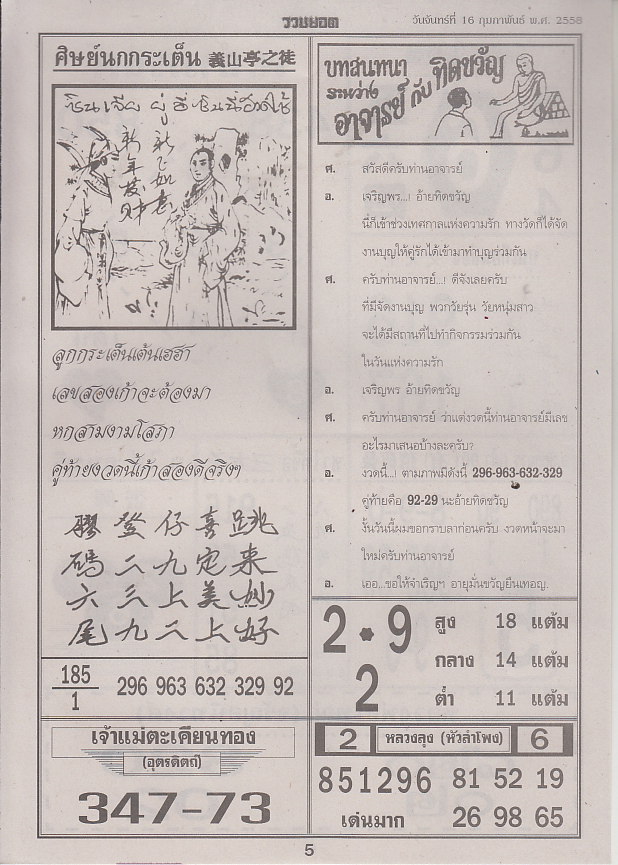 รวยยอด
วันจันทร์ที่ 16 กุมภาพันธ์ พ.ศ. 2558
ศิษย์นกกระเต็น 義山亭之徒
ซินเจีย ยู่อี่ ซินนี้ฮวดใช้
新年發財
新正如意
ลูกกระเต็นเต้นเฮฮา
เลขสองเก้าจะต้องมา
หกสามงามโสภา
คู่ท้ายงวดนี้เก้าสองดีจริงๆ
膠登仔喜跳
碼二九定来
六三上美妙
尾九二上好
185
1
296 963 632 329 92
เจ้าแม่ตะเคียนทอง
(อุตรดิตถ์)
347-73
บทสนทนา
ระหว่าง
อาจารย์ กับ ทิดขวัญ
ศ. สวัสดีครับท่านอาจารย์
อ. เจริญพร...! อ้ายทิดขวัญ
นี่ก็เข้าช่วงเทศกาลแห่งความรัก ทางวัดก็ได้จัด
งานบุญให้คู่รักได้เข้ามาทำบุญร่วมกัน
ศ. ครับท่านอาจารย์...! ดีจังเลยครับ
ที่มีจัดงานบุญ พวกวัยรุ่น วัยหนุ่มสาว
จะได้มีสถานที่ไปทำกิจกรรมร่วมกัน
ในวันแห่งความรัก
อ. เจริญพร อ้ายทิดขวัญ
ศ. ครับท่านอาจารย์ ว่าแต่งวดนี้ท่านอาจารย์มีเลข
อะไรมาเสนอบ้างละครับ?
อ. งวดนี้...! ตามภาพมีดังนี้ 296-963-632-329
คู่ท้ายคือ 92-29 นะอ้ายทิดขวัญ
ศ. งั้นวันนี้ผมขอกราบลาก่อนครับ งวดหน้าจะมา
ใหม่ครับท่านอาจารย์
อ. เออ...ขอให้จำเริญๆ อายุมั่นขวัญยืนเทอญ.
2 • 9
2
สูง 18 แต้ม
กลาง 14 แต้ม
ต่ำ 11 แต้ม
2 หลวงลุง (หัวลำโพง) 6
851296 81 52 19
เด่นมาก 26 98 65
5